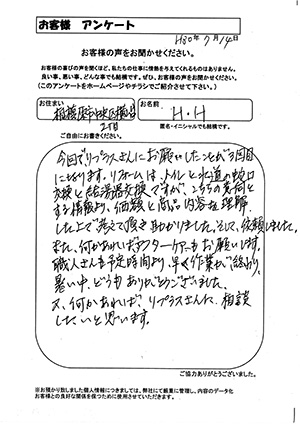 お客様　アンケート
H30年7月14日
お客様の声をお聞かせください。
お客様の喜びの声を聞くほど、私たちの仕事に情熱を与えてくれるものはありません。
良い事、悪い事、どんな事でも結構です。ぜひ、お客様の声をお聞かせください。
(このアンケートをホームページやチラシでご紹介させて下さい。)
お住まい
相模原市中央区横山
2丁目
お名前
H・H
匿名・イニシャルでも結構です。
ご自由にお書きください。
今回でリプラスさんにお願いしたことが3回目
になります。リフォームは、トイレと水道の蛇口
交換と給湯器交換ですが、こちらの意向と
する情報より、価額と商品内容を理解
した上で考えて頂き助かりました。そして、依頼しました。
また、何かあればアフターケアーもお願いします。
職人さんも予定時間より、早く作業が終わり、
暑い中、どうもありがとうございました。
又、何かあれば リプラスさんに、相談
したいと思います。
ご協力ありがとうございました。
※お預かり致しました個人情報につきましては、弊社にて厳重に管理し、内容のデータ化
お客様との良好な関係を保つために使用させていただきます。